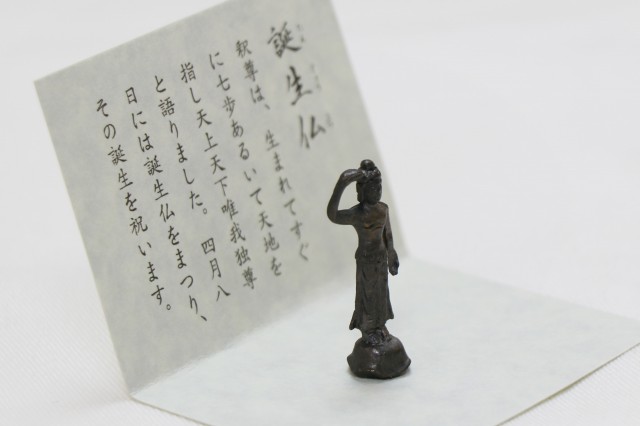 誕生仏
釈尊は、生まれてすぐ
に七歩あるいて天地を
指し天上天下唯我独尊
と語りました。四月八
日には誕生仏をまつり、
その誕生を祝います。